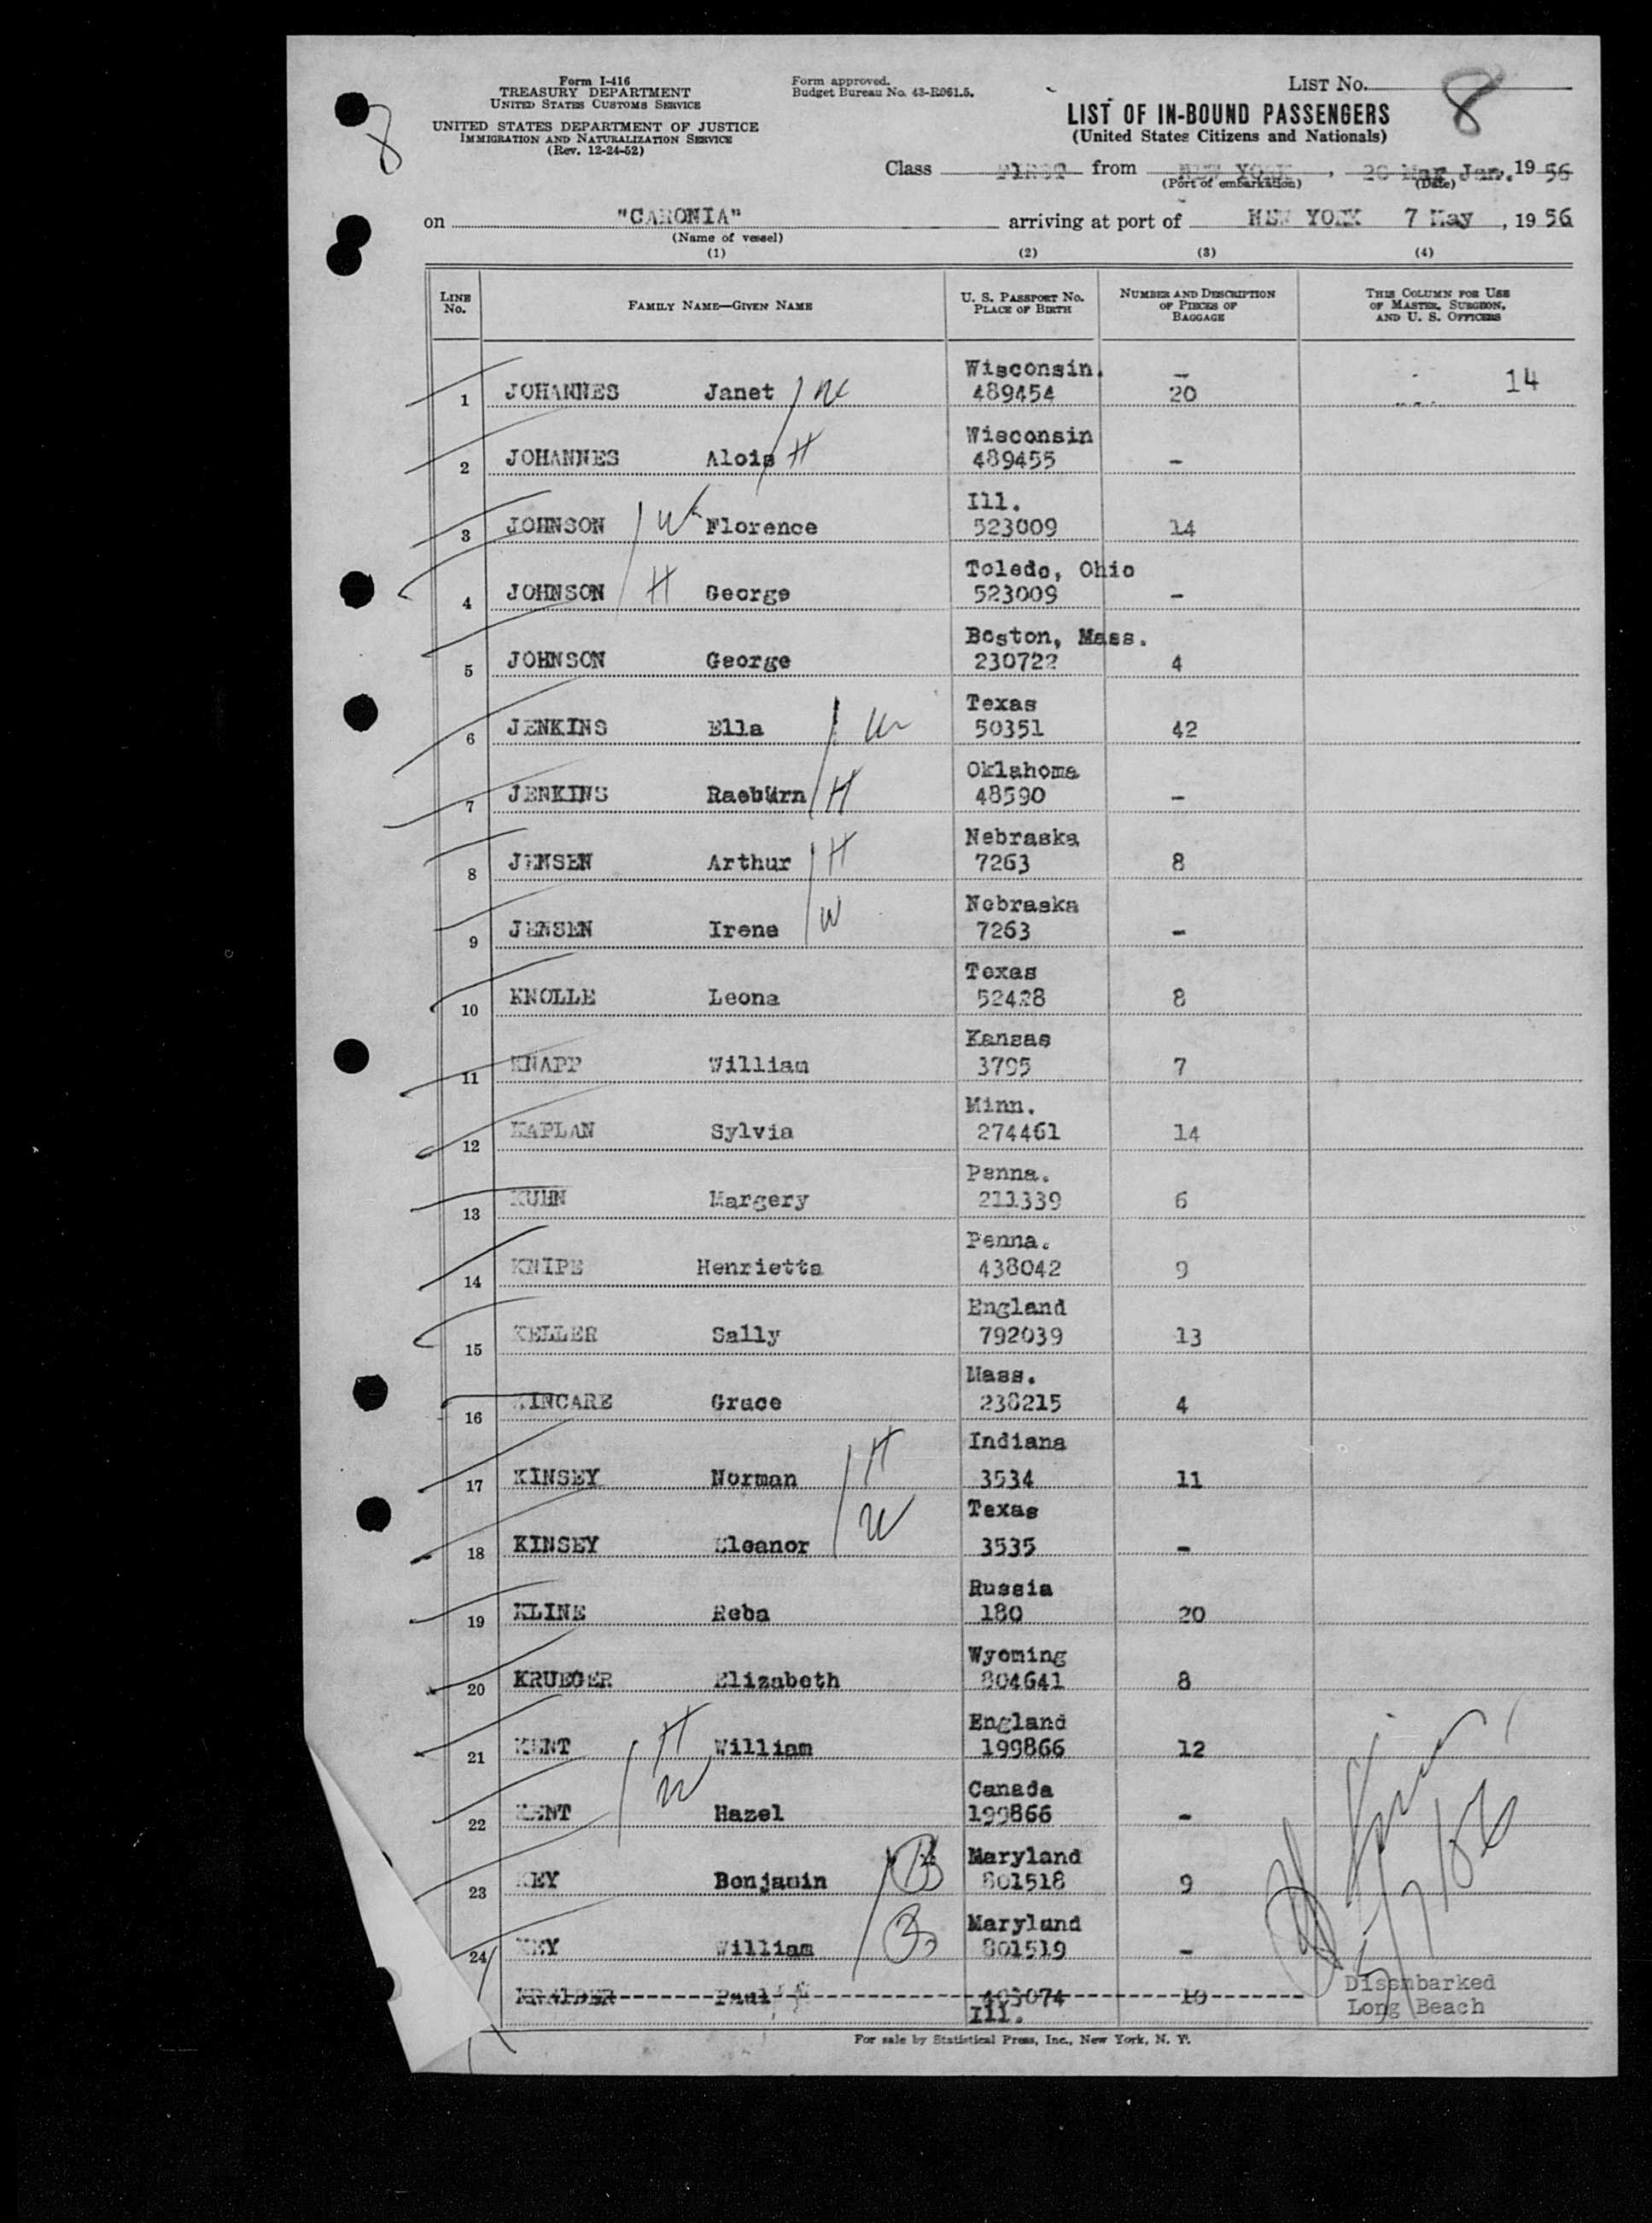 Form I-416
TREASURY DEPARTMENT
UNITED STATES CUSTOMS SERVICE
UNITED STATES DEPARTMENT OF JUSTICE
IMMIGRATION AND NATURALIZATION SERVICE
(Rev. 12-24-52)
8
Form approved.
Budget Bureau No. 43-R061.5.
LIST No. 8
LIST OF IN-BOUND PASSENGERS
(United States Citizens and Nationals)
Class FIRST from NEW YORK, 20 Mar Jan. 1956
(Port of embarkation) (Date)
on "CARONIA" arriving at port of NEW YORK 7 May, 1956
(Name of vessel)
(1) (2) (3) (4)
LINE No. FAMILY NAME—GIVEN NAME U. S. PASSPORT No. PLACE OF BIRTH NUMBER AND DESCRIPTION OF PIECES OF BAGGAGE THIS COLUMN FOR USE OF MASTER, SURGEON, AND U. S. OFFICERS
Wisconsin. -
1 JOHANNES Janet W 489454 20 14
Wisconsin
2 JOHANNES Alois H 489455 -
Ill.
3 JOHNSON W Florence 523009 14
Toledo, Ohio
4 JOHNSON H George 523009 -
Boston, Mass.
5 JOHNSON George 230722 4
Texas
6 JENKINS Ella W 50351 42
Oklahoma
7 JENKINS Raeburn H 48590 -
Nebraska
8 JENSEN Arthur H 7263 8
Nebraska
9 JENSEN Irene W 7263 -
Texas
10 KNOLLE Leona 52428 8
Kansas
11 KNAPP William 3795 7
Minn.
12 KAPLAN Sylvia 274461 14
Penna.
13 KUHN Margery 211339 6
Penna.
14 KNIPE Henrietta 438042 9
England
15 KELLER Sally 792039 13
Mass.
16 KINCARE Grace 238215 4
Indiana
17 KINSEY Norman H 3534 11
Texas
18 KINSEY Eleanor W 3535 -
Russia
19 KLINE Reba 180 20
Wyoming
20 KRUEGER Elizabeth 804641 8
England
21 KENT H William 199866 12
Canada
22 KENT W Hazel 199866 -
Maryland
23 KEY Benjamin B 801518 9
Maryland
24 KEY William B 801519 -
Paul 403074 10 Disembarked
Ill. Long Beach
5/7/56
For sale by Statistical Press, Inc., New York, N. Y.